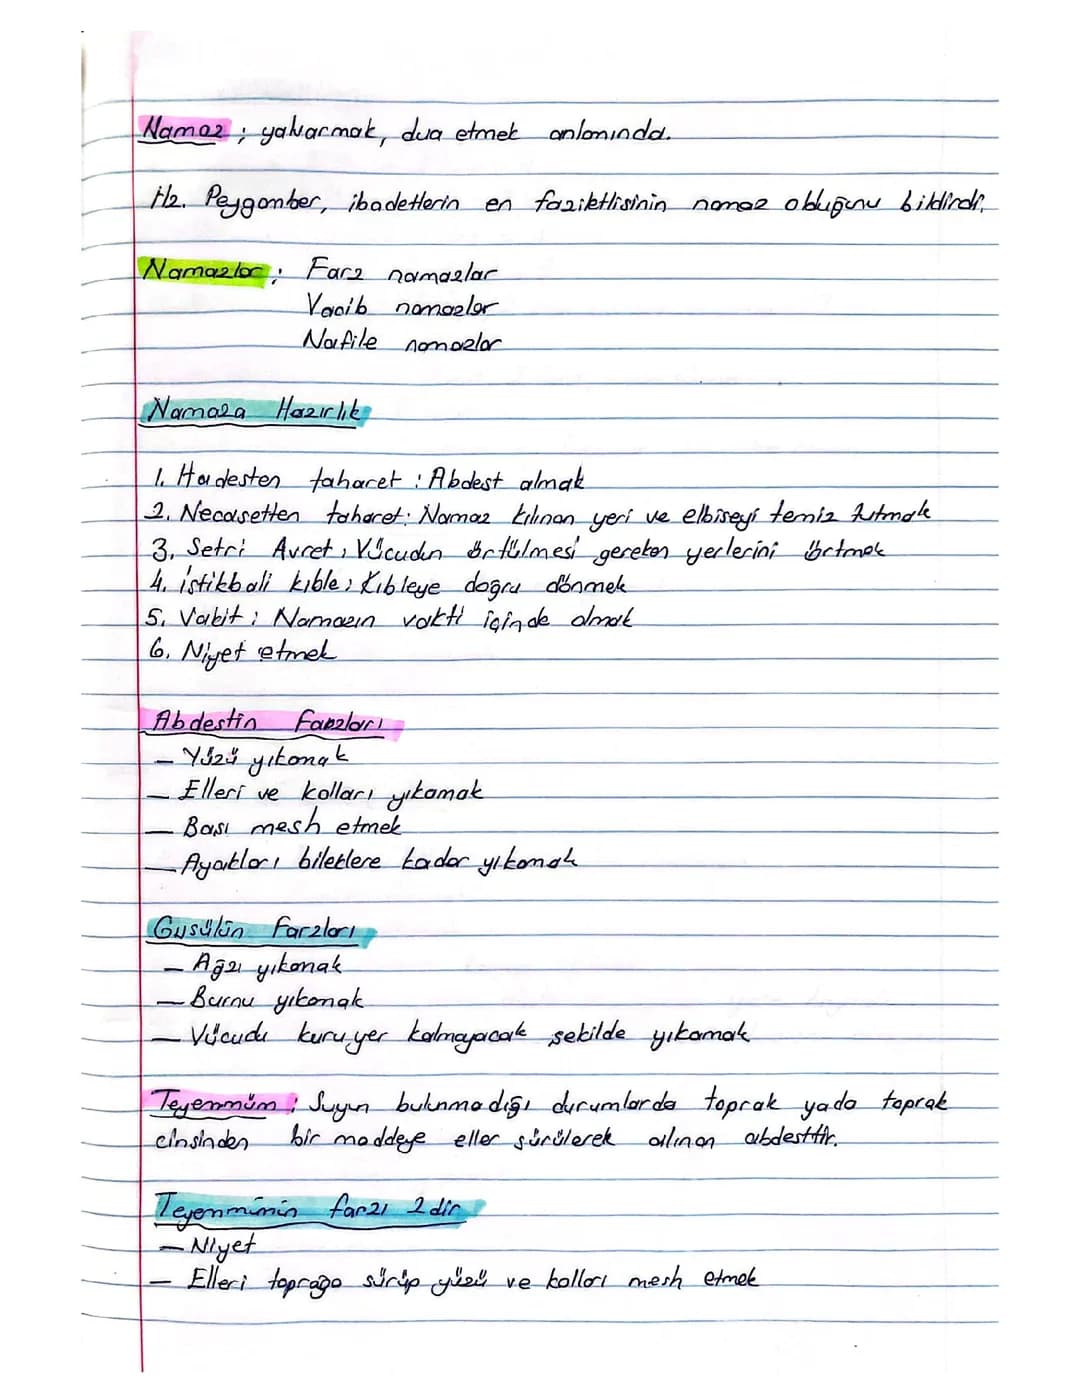 Namaz ; yalvarmak, dua etmek anlamında.
Hz. Peygamber, ibadetlerin en faziletlisinin namaz olduğunu bildirdi.
Namazlar : Farz namazlar
Vacib namazlar
Nafile namazlar
Namaza Hazırlık
1. Hadesten taharet : Abdest almak
2. Necasetten taharet: Namaz kılınan yeri ve elbiseyi temiz tutmak
3. Setri Avret : Vücudun örtülmesi gereken yerlerini örtmek
4. istikbali kıble : Kıbleye doğru dönmek
5. Vakit : Namazın vakti içinde olmak
6. Niyet etmek
Abdestin Farzları
- Yüzü yıkamak
- Elleri ve kolları yıkamak
- Başı mesh etmek
- Ayakları bileklere kadar yıkamak
Gusülün Farzları
- Ağzı yıkamak
- Burnu yıkamak
- Vücudu kuru yer kalmayacak şekilde yıkamak
Teyemmüm : Suyun bulunmadığı durumlarda toprak yada toprak
cinsinden bir maddeye eller sürülerek alınan abdesttir.
Teyemmümün farzı 2 dir
- Niyet
- Elleri toprağa sürüp yüzü ve kolları mesh etmek